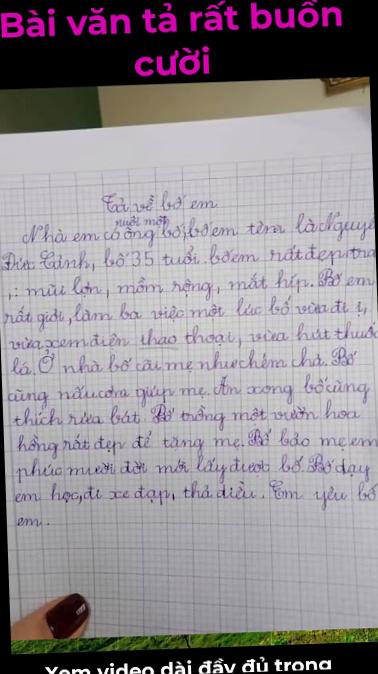 Bài văn tả rất buồn
cười
Tả về bố em
nuôi một
Nhà em có ông bố, bố em tên là Nguyễ
Đức Cảnh, bố 35 tuổi. bố em rất đẹp tra
,: mũi lợn, mồm rộng, mắt híp. Bố em
rất giỏi, làm ba việc một lúc bố vừa đi ị,
vừa xem điện thao thoại, vừa hút thuố
lá. Ở nhà bố cãi mẹ như chém chả. Bố
cũng nấu cơm giúp mẹ. Ăn xong bố cũng
thích rửa bát. Bố trồng một vườn hoa
hồng rất đẹp để tặng mẹ. Bố bảo mẹ em
phúc mười đời mới lấy được bố. Bố dạy
em học, đi xe đạp, thả diều. Em yêu bố
em.
Xem video dài đầy đủ trong